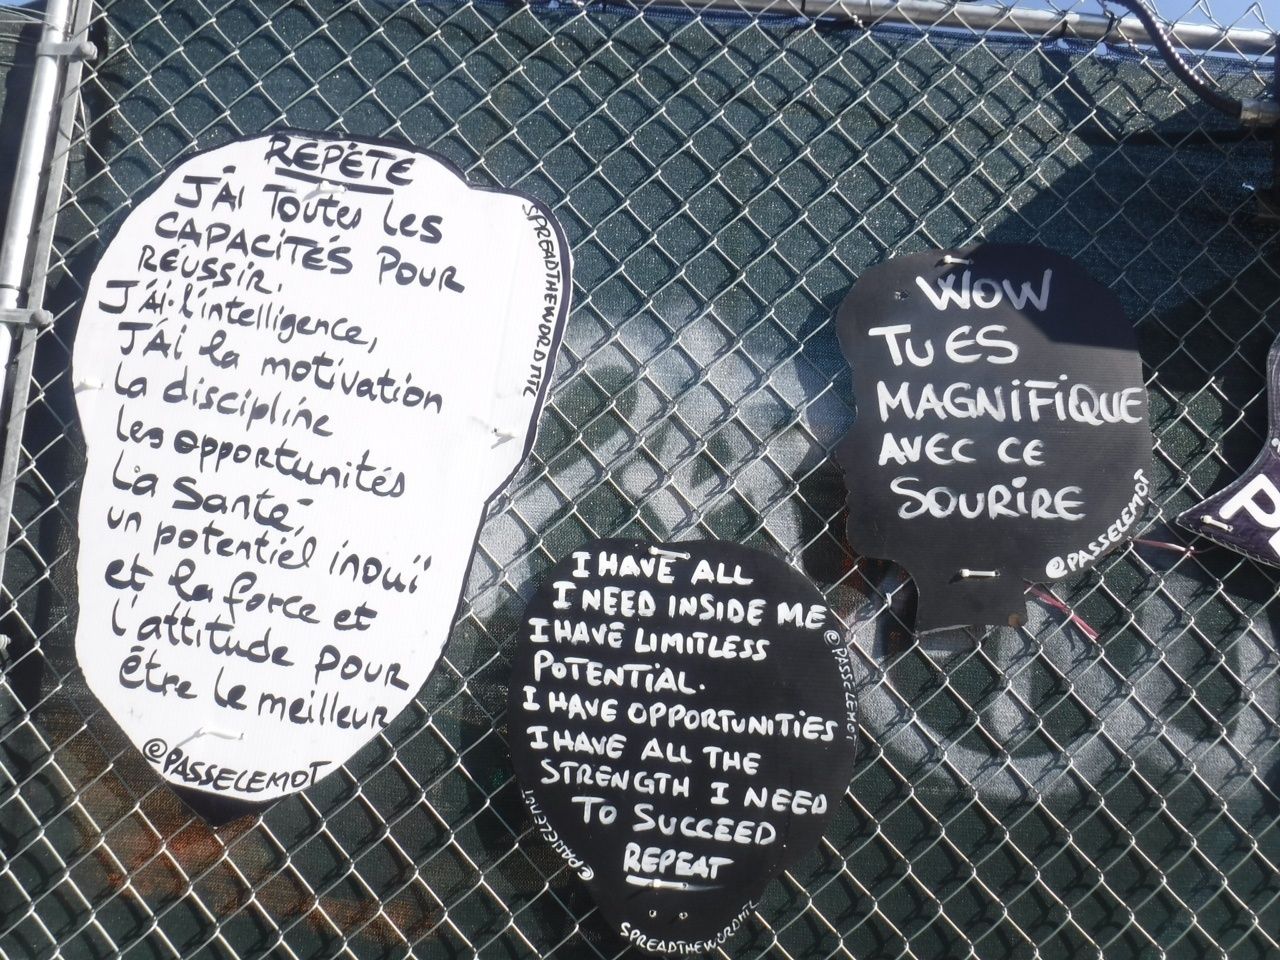 RÉPÈTE
J'AI Toutes les
CAPACITÉS POUR
RÉUSSIR.
J'AI l'intelligence,
J'AI la motivation
La discipline
les opportunités
La Santé,
un potentiel inouï
et la force et
l'attitude POUR
être le meilleur
@PASSELEMOT
SPREADTHEWORDMTL
I HAVE ALL
I NEED INSIDE ME
I HAVE LIMITLESS
POTENTIAL.
I HAVE OPPORTUNITIES
I HAVE ALL THE
STRENGTH I NEED
TO SUCCEED
REPEAT
@PASSELEMOT
@PASSELEMOT
SPREADTHEWORDMTL
WOW
TU ES
MAGNIFIQUE
AVEC CE
SOURIRE
@PASSELEMOT